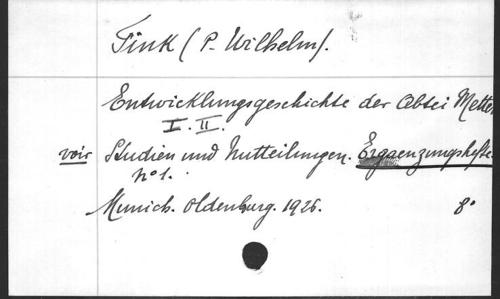 Fink (P. Wilhelm).
Entwicklungsgeschichte der Abtei Mette
I. II.
voir Studien und Mitteilungen. Ergaenzungshefte.
No 1.
Munich. Oldenburg. 1926. 8°